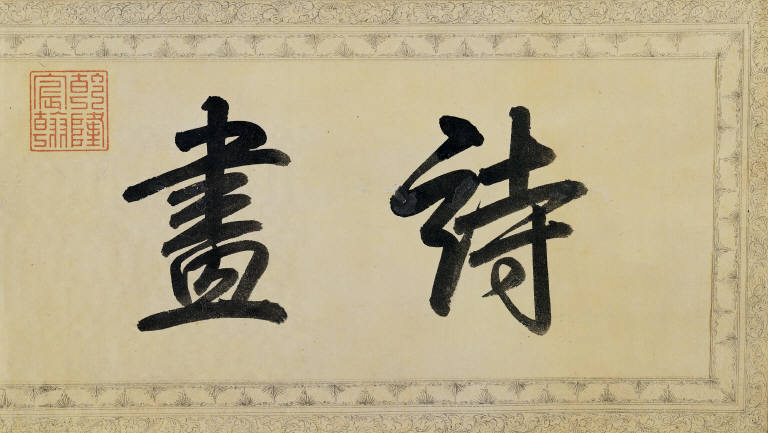 詩畫
乾隆
宸翰